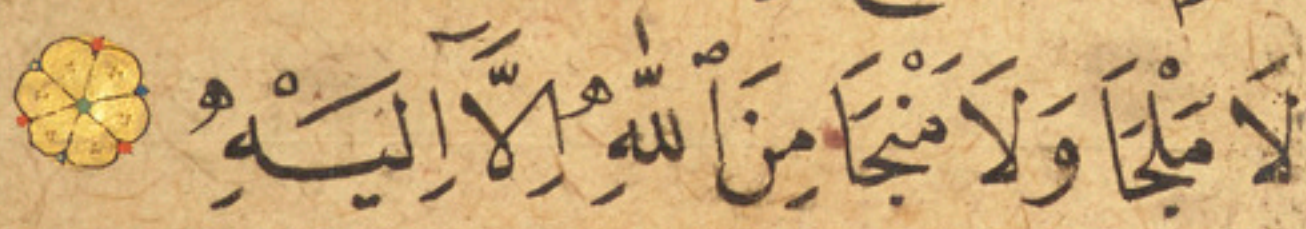 لَا مَلْجَاَ وَلَا مَنْجَاَ مِنَ ٱللّٰهِ اِلَّٓا اِلَيْهِ